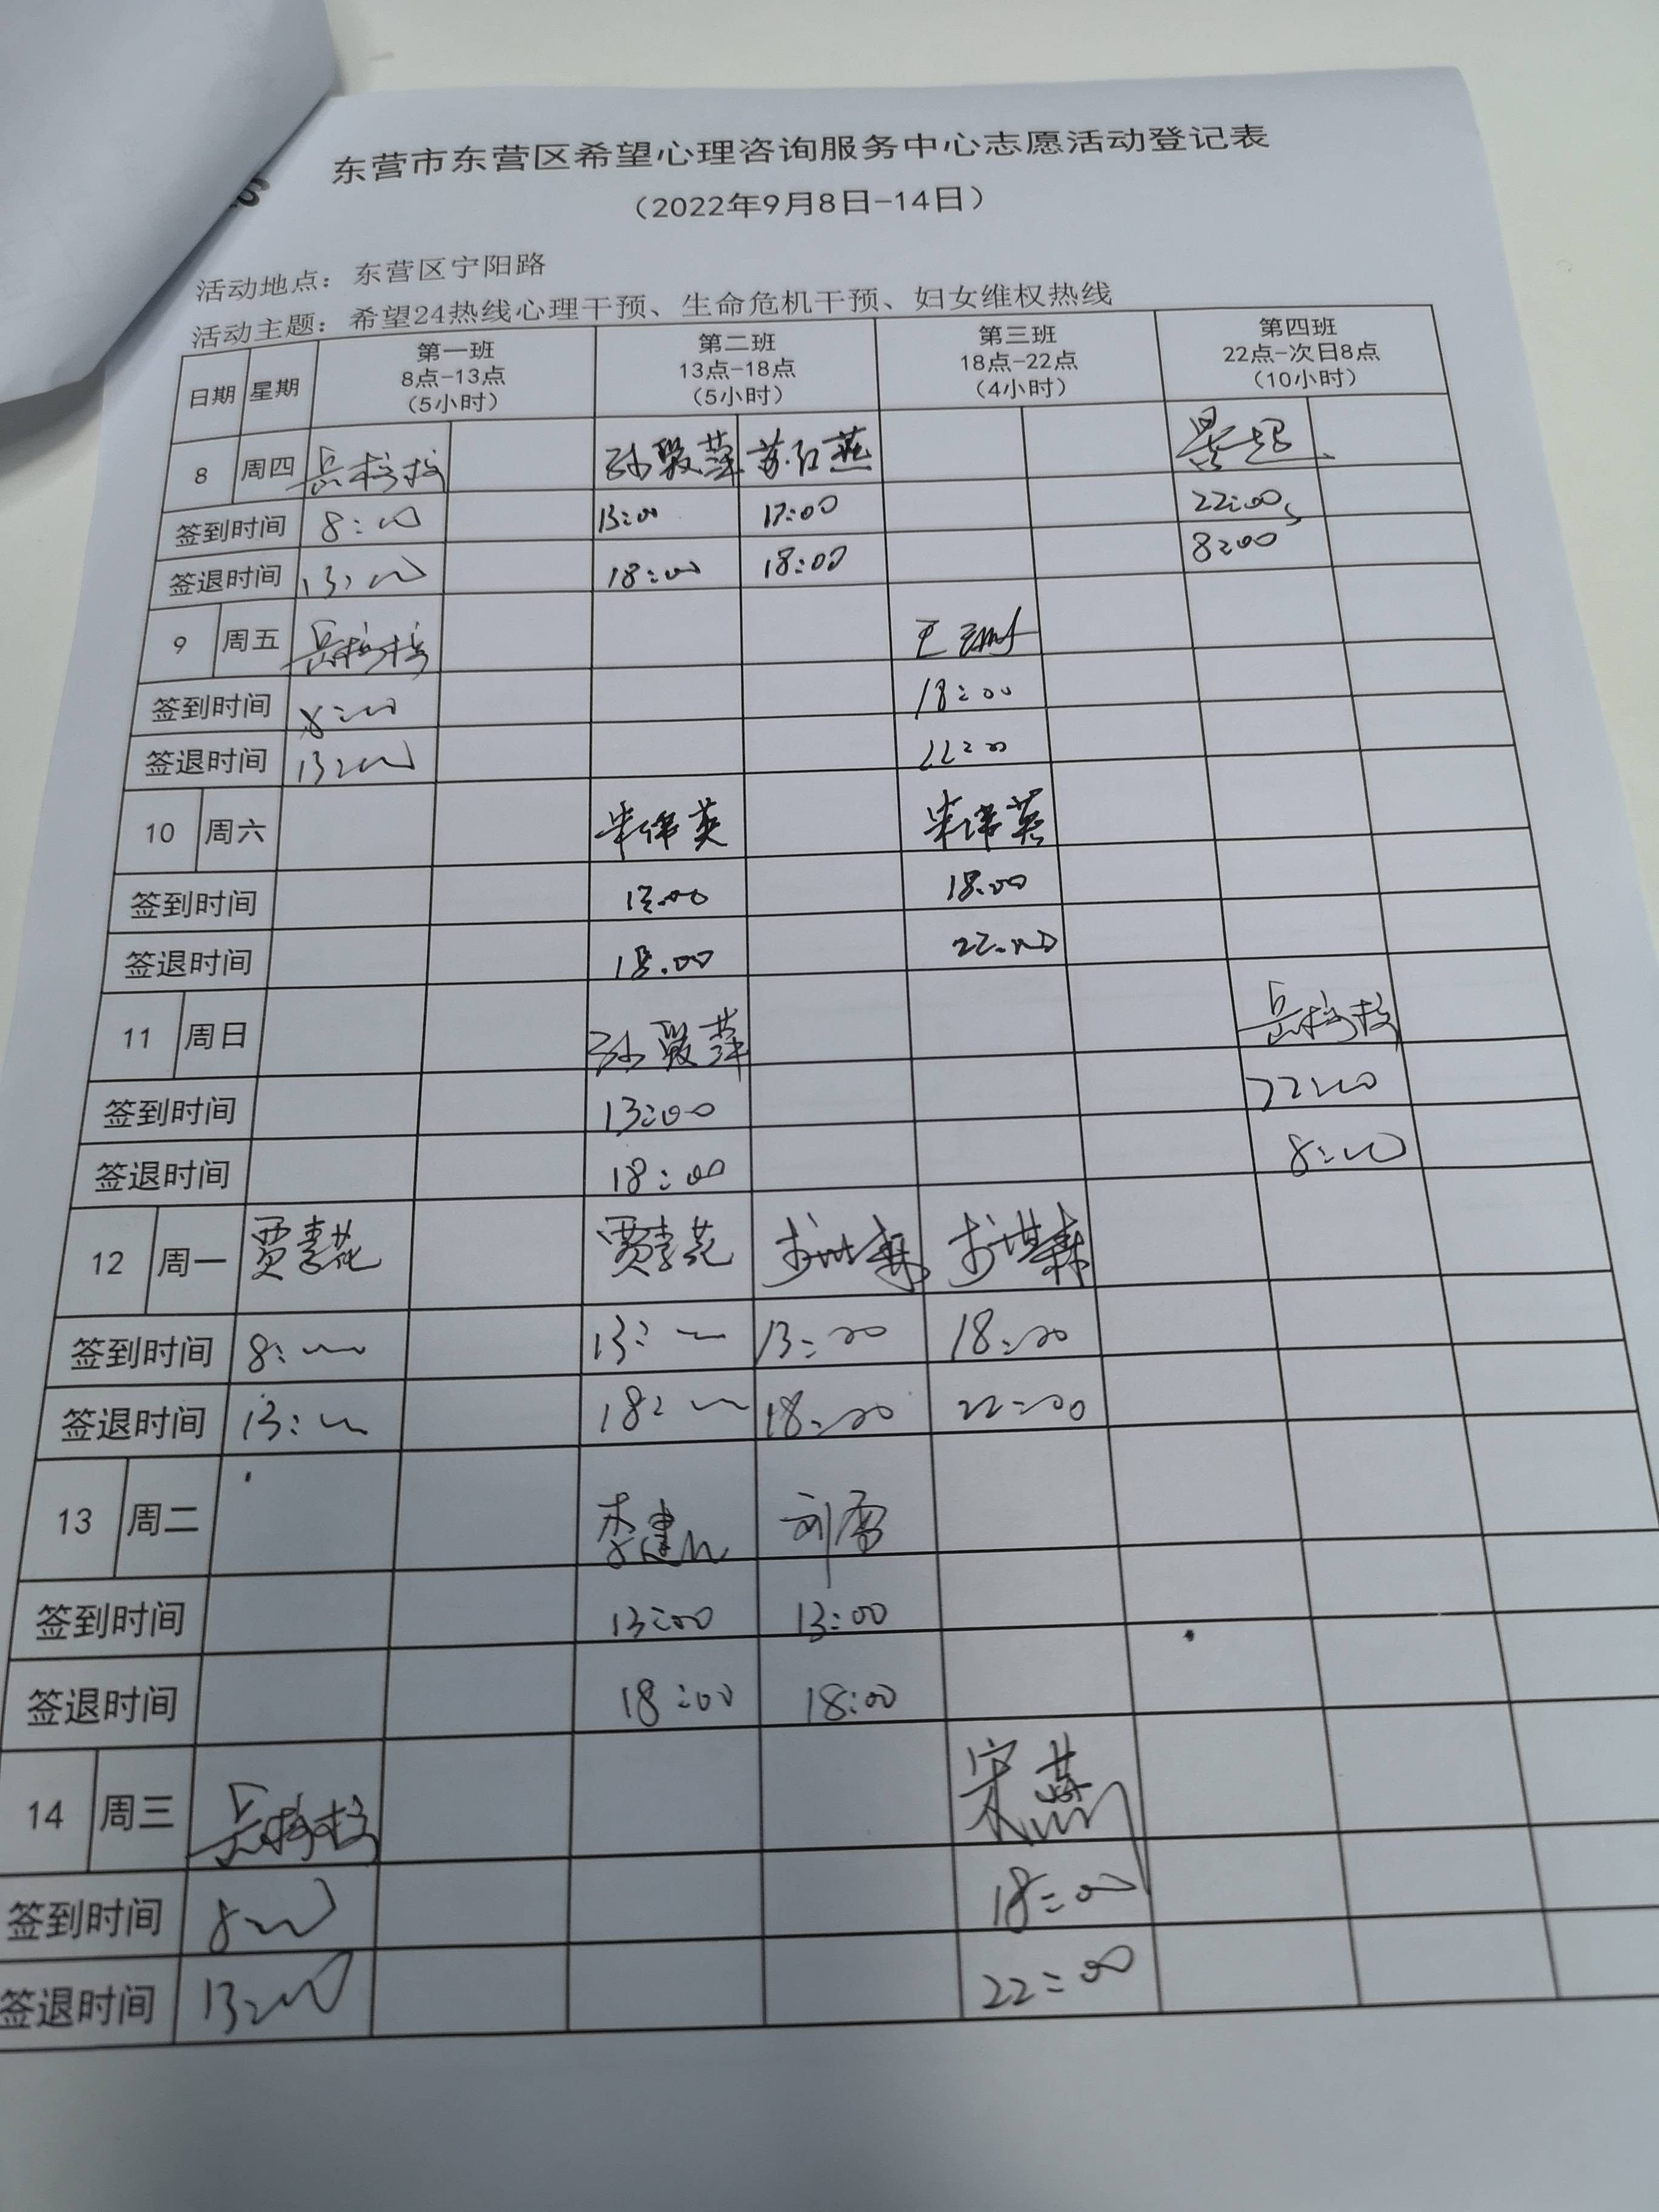 东营市东营区希望心理咨询服务中心志愿活动登记表
（2022年9月8日-14日）
活动地点：东营区宁阳路
活动主题：希望24热线心理干预、生命危机干预、妇女维权热线
日期 星期 第一班 第二班 第三班 第四班
8点-13点 13点-18点 18点-22点 22点-次日8点
（5小时） （5小时） （4小时） （10小时）
8 周四 苏红燕
签到时间 8:00 13:00 17:00 22:00
签退时间 13:00 18:00 18:00 8:00
9 周五
签到时间 8:00 18:00
签退时间 13:00 22:00
10 周六
签到时间 13:00 18:00
签退时间 18:00 22:00
11 周日
签到时间 13:00 22:00
签退时间 18:00 8:00
12 周一 贾孝花 贾孝花
签到时间 8:00 13:00 13:00 18:00
签退时间 13:00 18:00 18:00 22:00
13 周二 刘雷
签到时间 13:00 13:00
签退时间 18:00 18:00
14 周三 宋燕
签到时间 8:00 18:00
签退时间 13:00 22:00